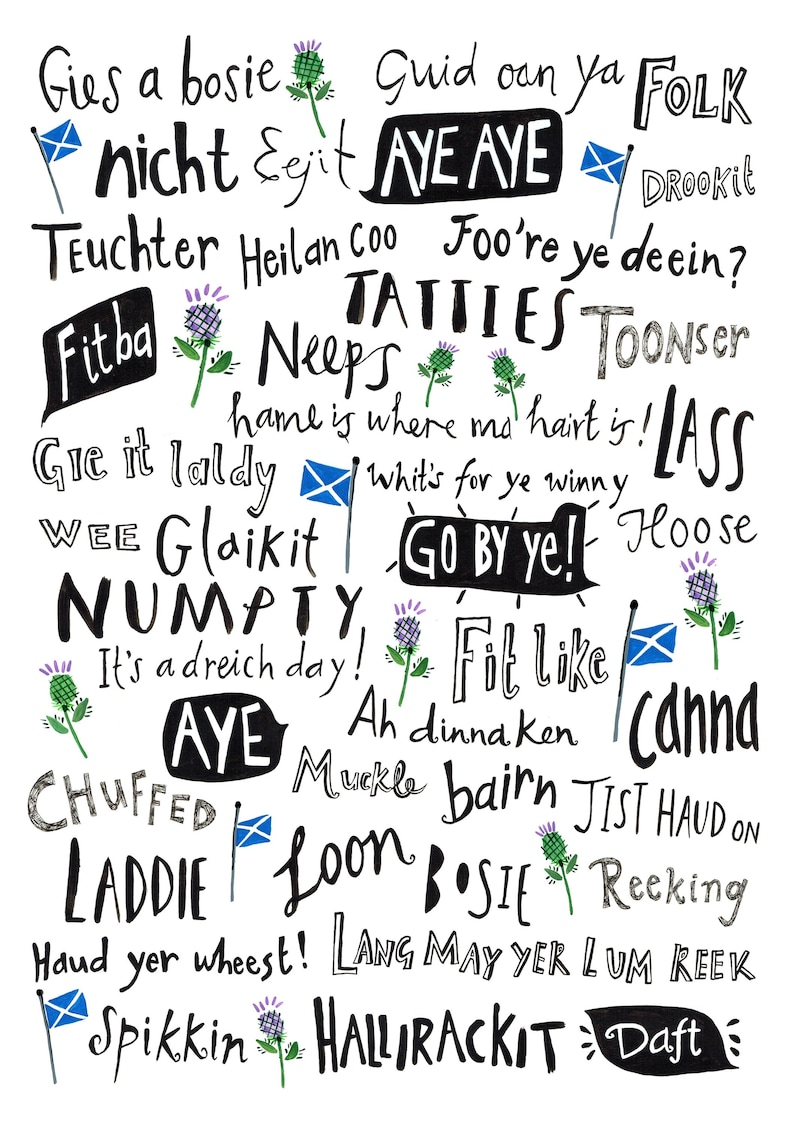 Gies a bosie
Guid oan ya
FOLK
nicht
Eejit
AYE AYE
DROOKit
TEuchter
Heilan Coo
Foo're ye deein?
TATTIES
Fitba
Neeps
TOONSer
hame is where ma hairt is!
LASS
Gie it laldy
whit's for ye winny
GO BY ye!
WEE
Glaikit
Hoose
NUMPTY
It's a dreich day!
Fit like
AYE
Ah dinna ken
canna
CHUFFED
Muckle
bairn
JIST HAUD ON
LADDIE
Loon
BOSIE
Reeking
Haud yer wheest!
LANG MAY YER LUM REEK
Spikkin
HALLIRACKIT
Daft